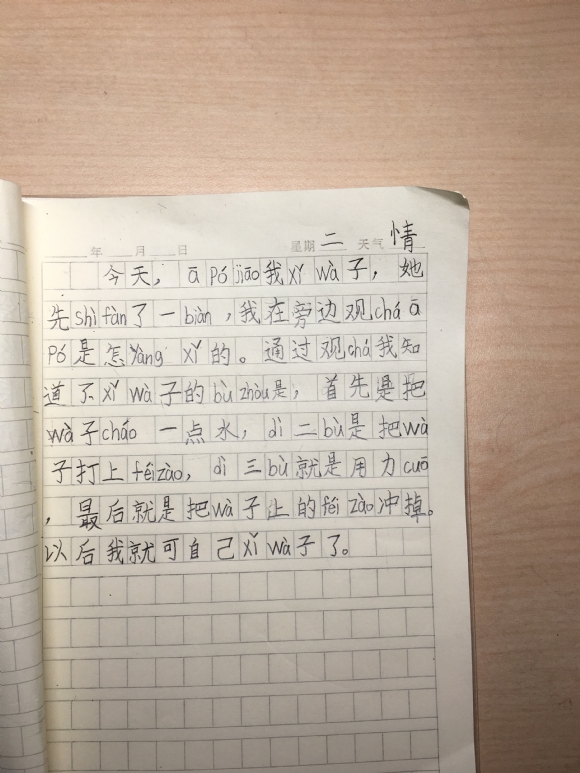 年 月 日 星期 二 天气 情
今天，ā pó jiāo我xǐ wà子，她
先shì fàn了一biàn，我在旁边观chá ā
pó是怎yàng xǐ的。通过观chá我知
道了xǐ wà子的bù zhòu是，首先是把
wà子cháo一点水，dì二bù是把wà
子打上féizào，dì三bù就是用力cuō
，最后就是把wà子上的féi zào冲掉。
以后我就可自己xǐ wà子了。